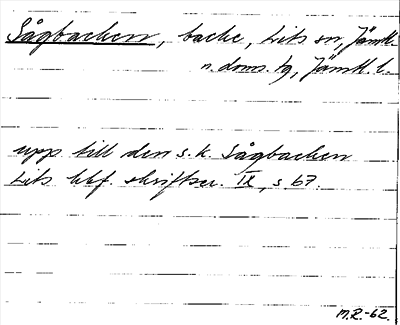 Sågbacken, backe, Lits sn, Jämtl.
n. doms. tg, Jämtl. l.
upp till den s.k. Sågbacken
Lits hbf. skriftser. IX, s 67.
M.R.-62.